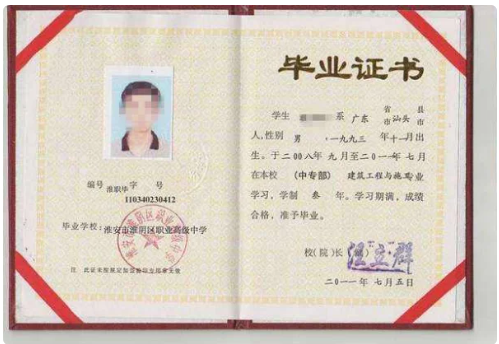 编号 淮职毕 字 号
110340230412
毕业学校：淮安市淮阴区职业高级中学
毕业证书
学生 系 广东 省 市 汕头 县 市
人,性别 男 ,一九九三 年 十一 月出
生。于二00八年 九月至二0一一年 七月
在本校 (中专部) 建筑工程与施工专业
学习，学制 叁 年。学习期满，成绩
合格，准予毕业。
校(院)长
二0一一年 七月五日